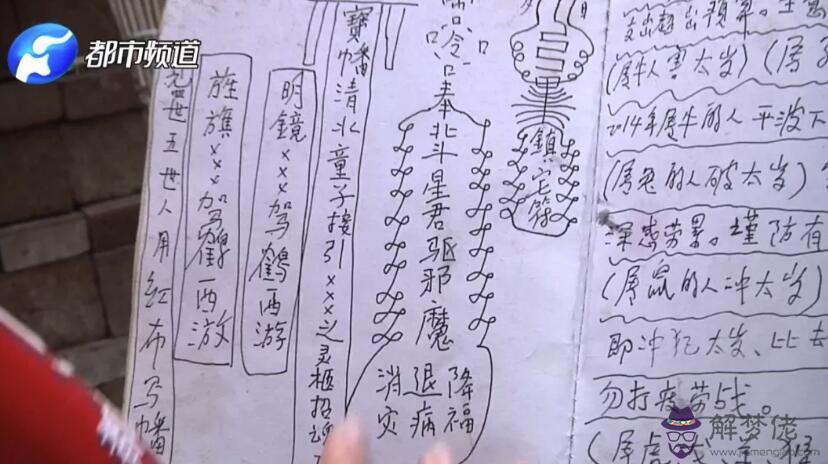 都市频道
五世人用红布写幡
旌旗×××驾鹤西游
明鏡×××驾鶴西游
寶幡清水童子接引×××之灵柩招
奉北斗星君驱邪魔
降福
退病
消灾
鎮宅符
(属牛人害太岁)(属
2014年属牛的人平波下
(属兔的人破太岁)
深感劳累。谨防有
(属鼠的人冲太岁)
即冲犯太岁、比去
勿打疲劳战。
(属虎
解梦佬